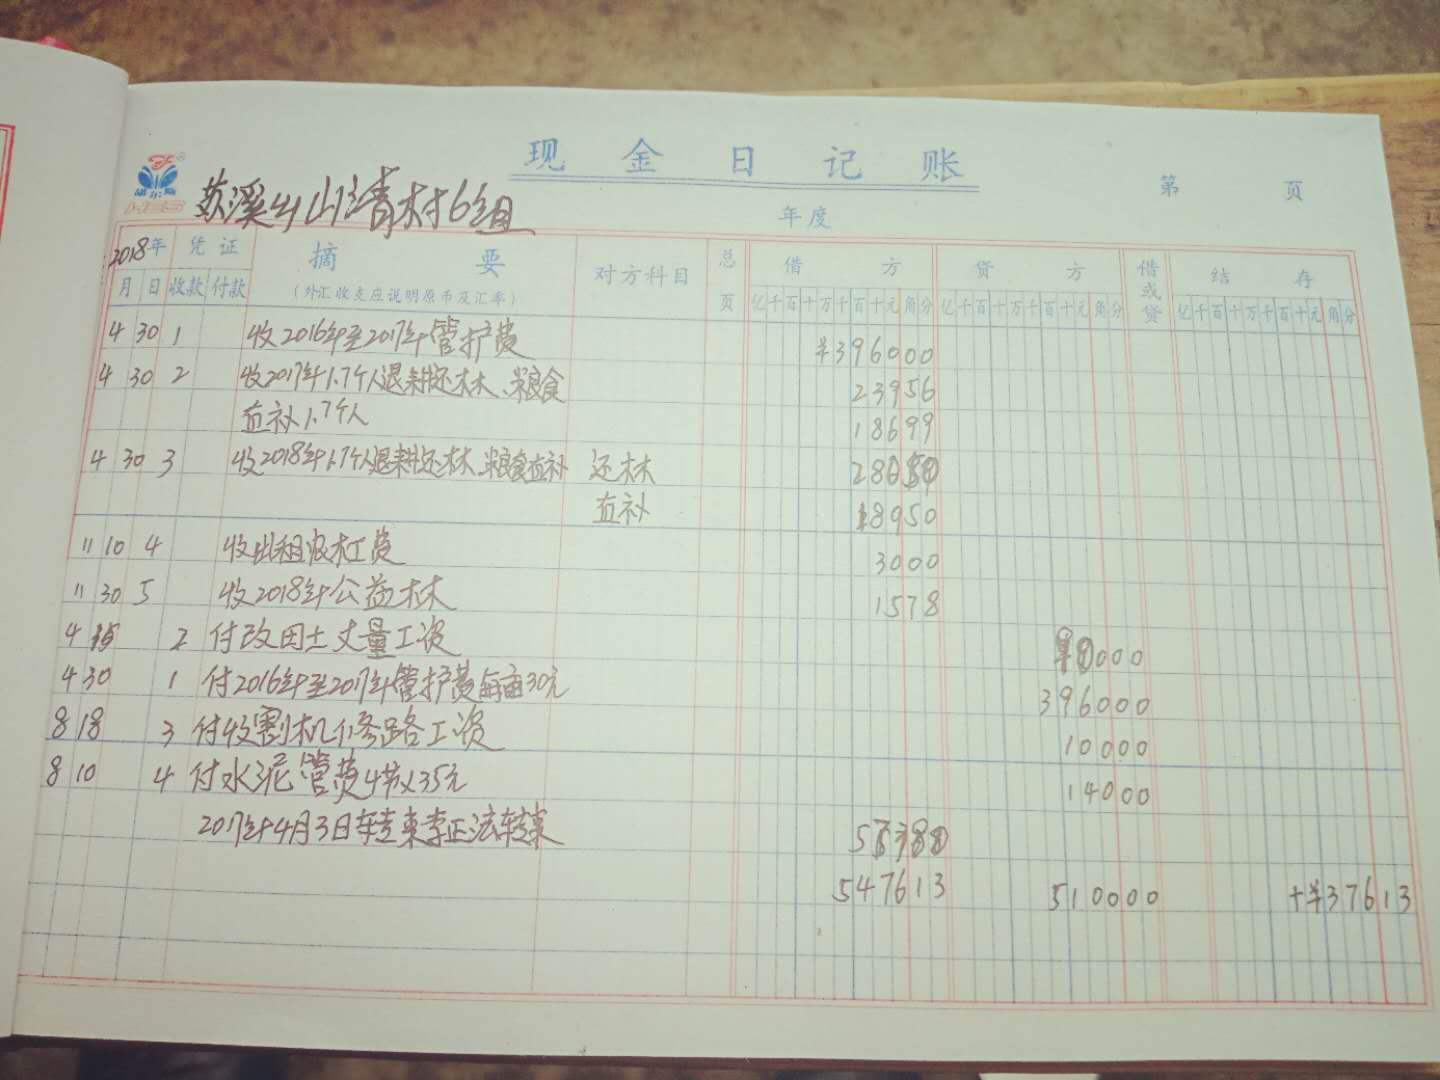 现金日记账
第 页
苏溪乡山清村6组
年度
2018年 凭证 摘要 对方科目 总页 借方 贷方 借或贷 结存
月 日 收款 付款 (外汇收支应说明原币及汇率) 亿千百十万千百十元角分 亿千百十万千百十元角分 亿千百十万千百十元角分
4 30 1 收2016年至2017年管护费 ¥396000
4 30 2 收2017年1.7个人退耕还林、粮食 23956
直补1.7个人 18699
4 30 3 收2018年1.7个人退耕还林、粮食直补 还林
直补 18950
11 10 4 收出租 3000
11 30 5 收2018年公益林 1578
4 15 2 付改田土丈量工资
4 30 1 付2016年至2017年管护费每亩30元 396000
8 18 3 付收割机修路工资 10000
8 10 4 付水泥管费4节×35元 14000
2017年4月3日转李正法转来
547613 510000 +¥37613